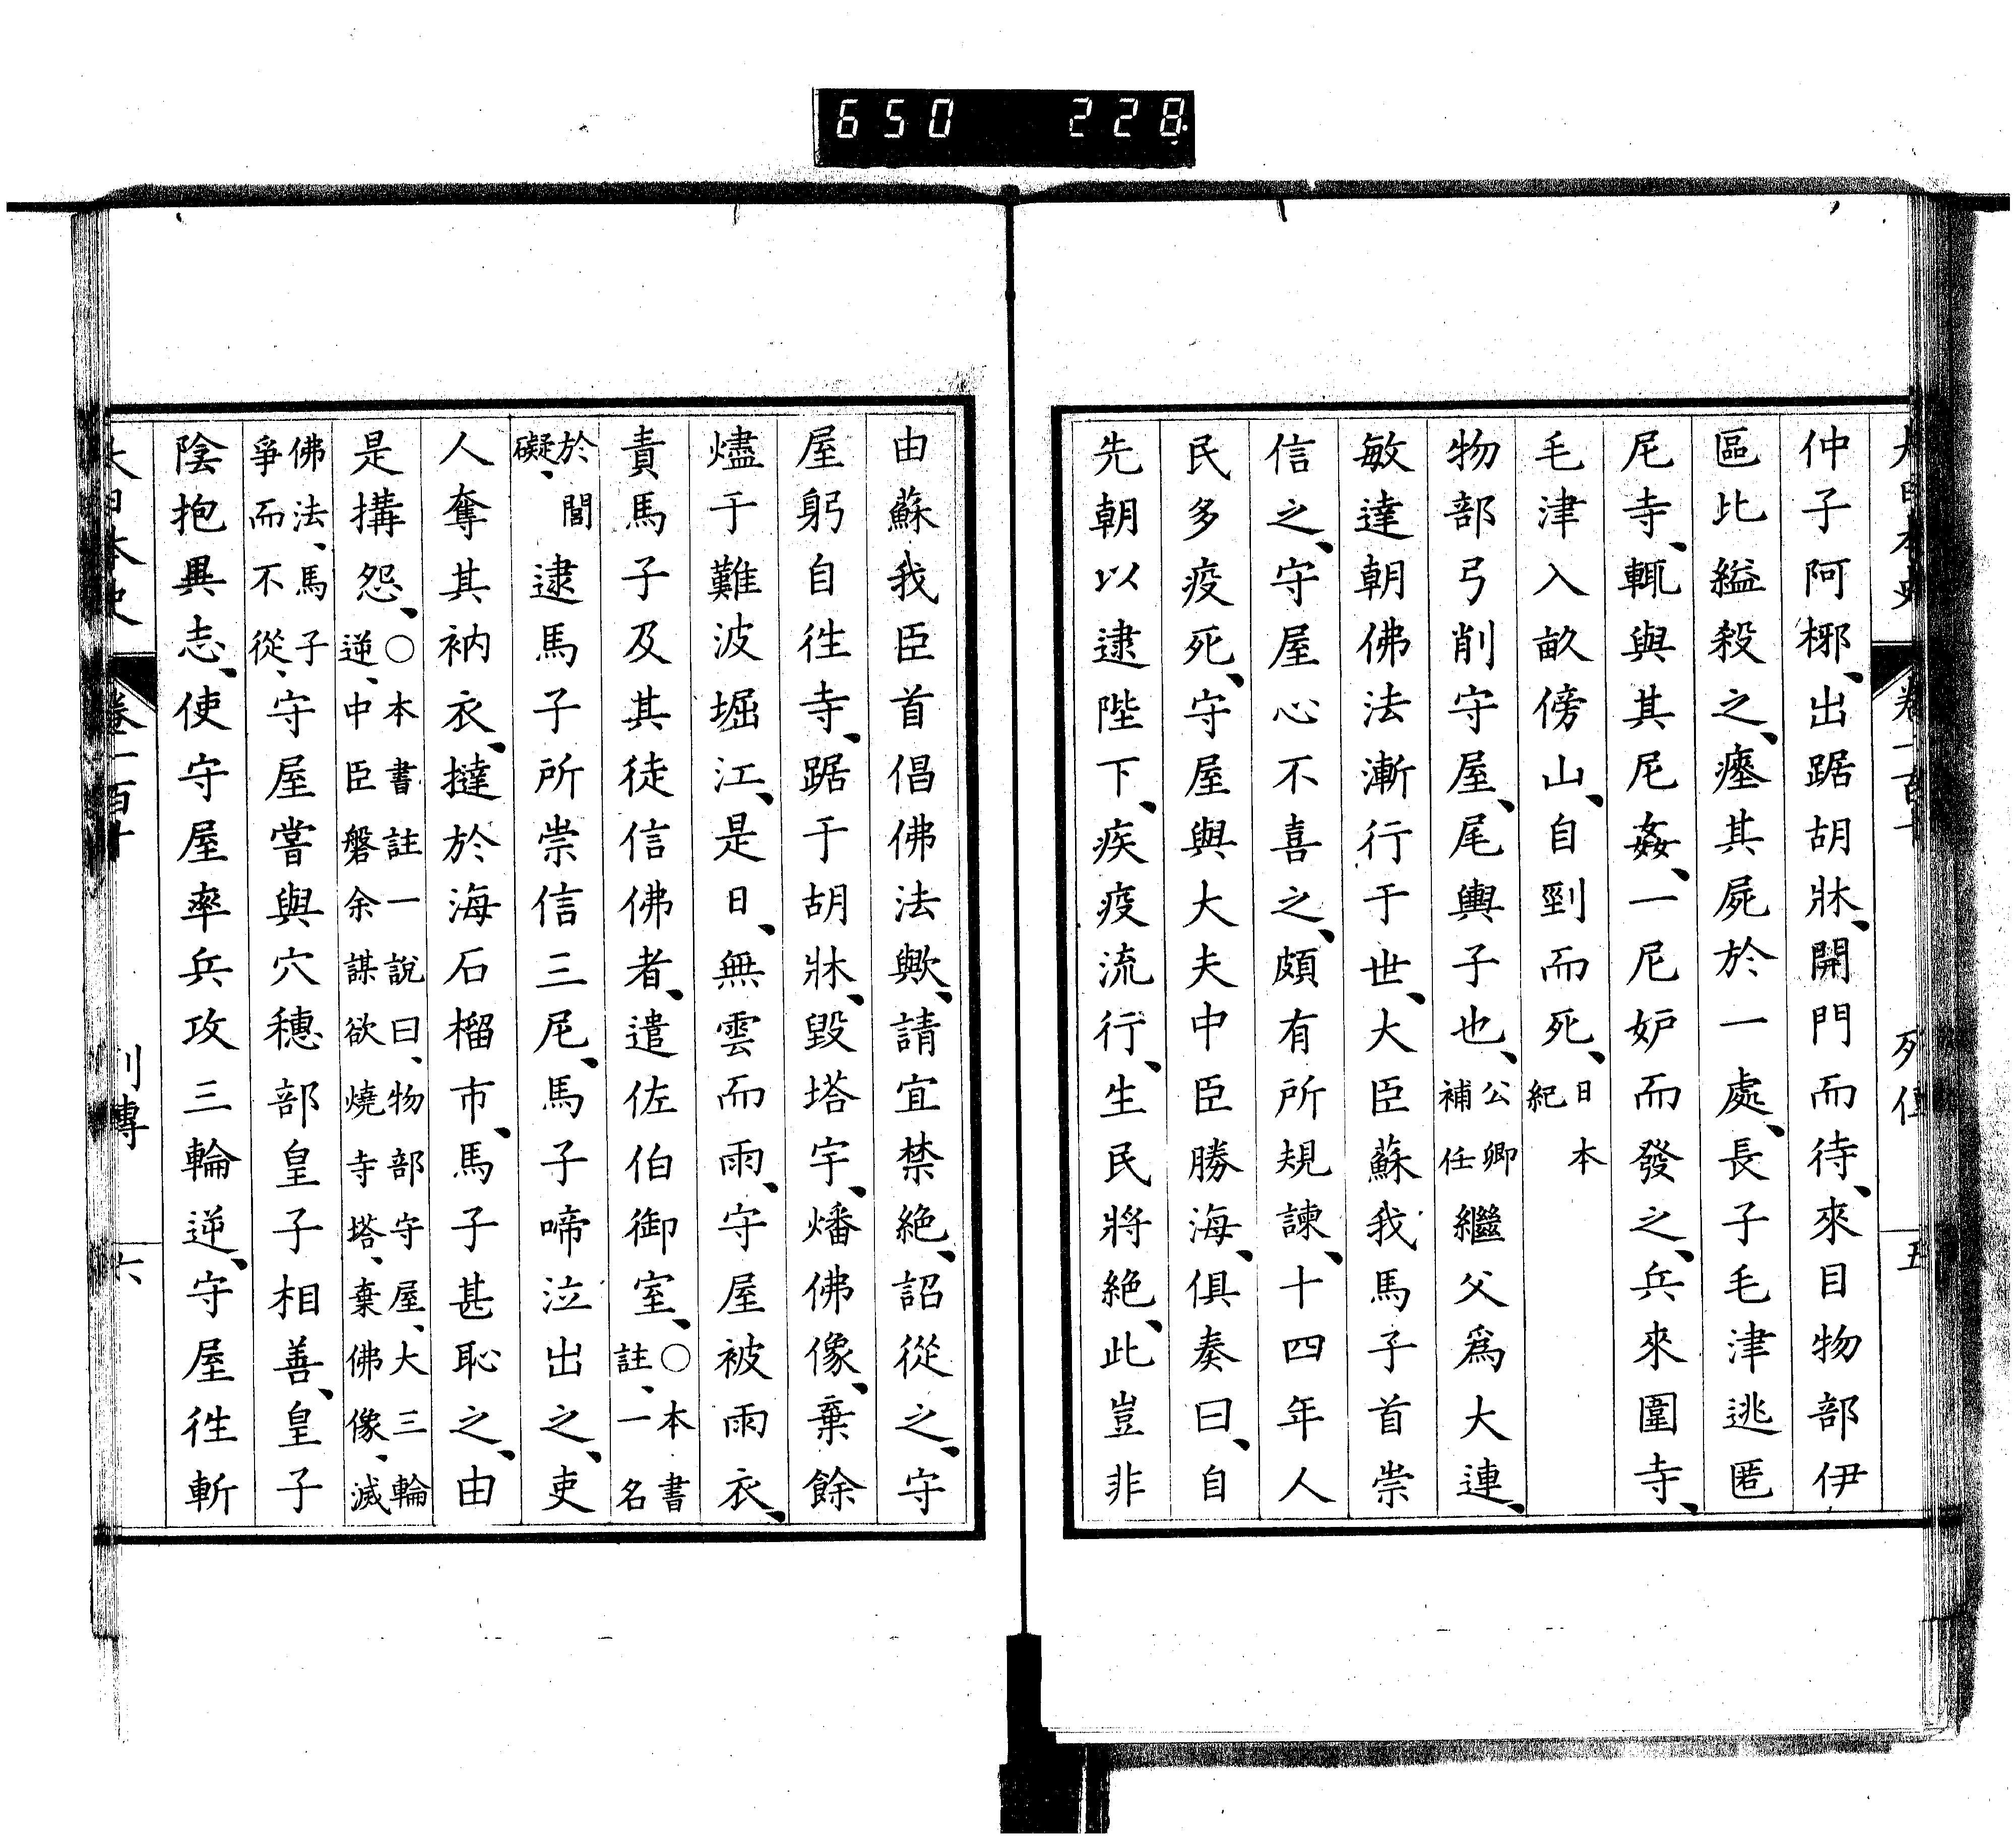 650 228
大日本史 卷一百十 列傳 五
仲子阿椰、出踞胡牀、開門而待、來目物部伊
區比縊殺之、瘞其屍於一處、長子毛津逃匿
尼寺、輒與其尼姦、一尼妒而發之、兵來圍寺、
毛津入畝傍山、自剄而死、日本紀
物部弓削守屋、尾輿子也、公卿補任繼父爲大連、
敏達朝佛法漸行于世、大臣蘇我馬子首崇
信之、守屋心不喜之、頗有所規諫、十四年人
民多疫死、守屋與大夫中臣勝海、俱奏曰、自
先朝以逮陛下、疾疫流行、生民將絶、此豈非
由蘇我臣首倡佛法歟、請宜禁絶、詔從之、守
屋躬自徃寺、踞于胡牀、毀塔宇、燔佛像、棄餘
燼于難波堀江、是日、無雲而雨、守屋被雨衣、
責馬子及其徒信佛者、遣佐伯御室、○本書註、一名
於閭礙、逮馬子所崇信三尼、馬子啼泣出之、吏
人奪其衲衣、撻於海石榴市、馬子甚恥之、由
是搆怨、○本書註一說曰、物部守屋、大三輪逆、中臣磐余謀欲燒寺塔、棄佛像、滅
佛法、馬子爭而不從、守屋嘗與穴穗部皇子相善、皇子
陰抱異志、使守屋率兵攻三輪逆、守屋徃斬
大日本史 卷一百十 列傳 六